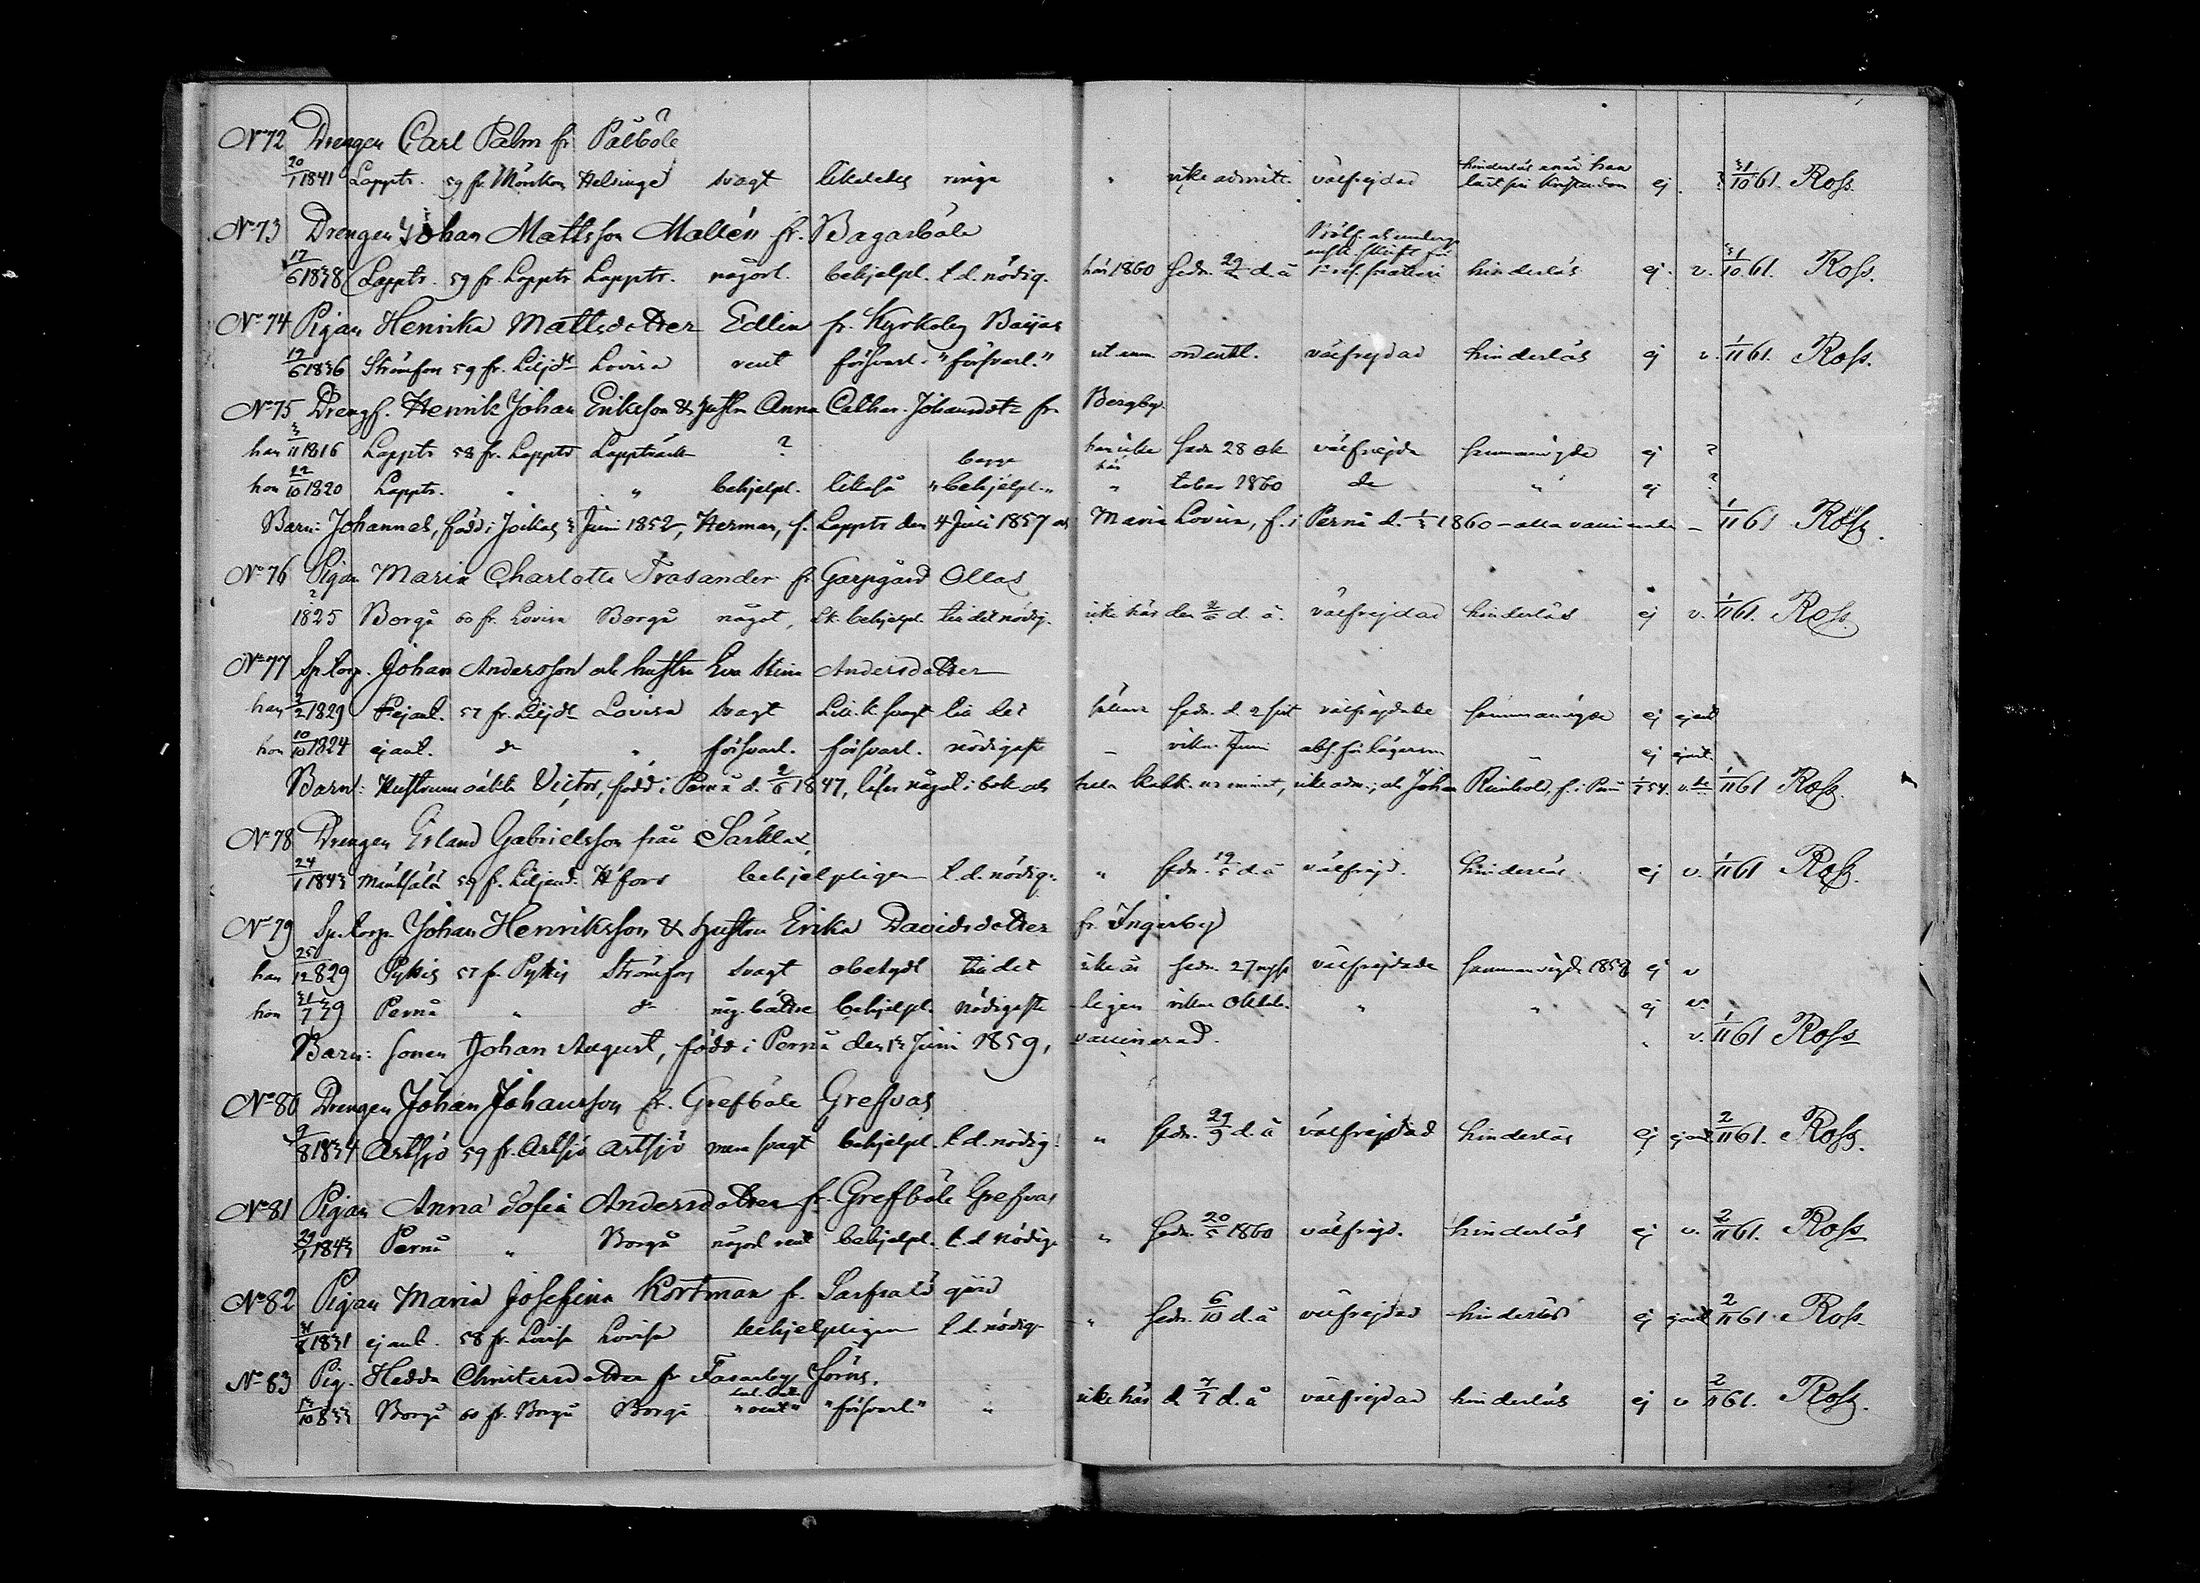 No 72 Drengen Carl Palm fr Pålböle
20/1 1841 Lappts. 59 fr. Mörskom Helsinge svagt likaledes ringa " icke admitt. välfrejdad hinderlös när han läst sin kristendom ej. 31/10 61. Ross.
No 73 Drengen Johan Mattsson Mallén fr. Bagarböle
17/6 1838 Lappts. 59 fr. Lappts Lappts. någorl. behjelpl. t. d. nödig. här 1860 sedn. d. å hinderlös ej. v. 31/10 61. Ross.
No 74 Pigan Henrika Mattsdotter Edlin fr. Kyrkoby Baijas
19/6 1836 Strömfors 59 fr. Liljdl Lovisa rent försvarl. "försvarl." ordentl. välfrejdad hinderlös ej v. 1/11 61. Ross.
No 75 Drengf. Henrik Johan Eriksson & hustru Anna Cathar. Johansdotr fr. Bergby
han 3/11 1816 Lappts 58 fr. Lappts Lappträsk ? har icke sedn 28 ok välfrejda sammanvigde ej ?
hon 22/10 1820 Lappts. " " behjelpl. likaså "behjelpl." här " tober 1860 do " ej ?
Barn: Johannes, född i Joikas 3 Juni 1852, Herman, f. Lappts den 4 Juli 1857 och Maria Lovisa, f. i Pernå d. 1/3 1860 – alla vaccinerade – 1/11 61 Ross.
No 76 Pigan Maria Charlotta Trasander fr Garpgård Ollas
? 1825 Borgå 60 fr. Lovisa Borgå något, lit. behjelpl. till det nödig. icke här den d. å. välfrejdad hinderlös ej v. 1/11 61. Ross.
No 77 Sp. torp. Johan Andersson och hustru Eva Stina Andersdotter
han 3/2 1829 ej ant. 57 fr. Liljdl Lovisa svagt lik. svagt till det sällan sedn. d. 2 sist välfrejdade sammanvigde ej ej ant
hon 10/10 1824 ej ant. do " försvarl. försvarl. nödigaste – vikn. Juni abs. för lägersm. ej ej ant.
Barn: Hustruns oäkta Victor, född i Pernå d. 2/6 1847, läser något i bok och hela katek. ur minnet, icke adm.; och Johan Reinhold, f. i Pernå 54. 1/11 61 Ross.
No 78 Drengen Erland Gabrielsson från Särklax
24/1 1843 Mäntsälä 59 f. Liljend. Hfors behjelpligen t. d. nödig. " sedn. 19/5 d. å välfrejd. hinderlös ej v. 1/11 61 Ross.
No 79 Sp. torp. Johan Henriksson & hustru Erika Davidsdotter fr. Ingerby
han 25/12 829 Pyttis 57 fr. Pyttis Strömfors svagt obetydl till det sedn. 27 välfrejdade sammanvigde 1858 ej v
hon 31/7 39 Pernå " do någ. bättre behjelpl. nödigaste ligen vikn Oktob. " " ej v.
Barn: sonen Johan August, född i Pernå den 13 Juni 1859, vaccinerad. " v. 1/11 61 Ross
No 80 Drengen Johan Johansson fr. Grefböle Grefvas
9/8 1834 Artsjö 59 fr. Artsjö Artsjö svagt behjelpl t. d. nödig. " sedn. 29/9 d. å välfrejdad hinderlös ej ej ant 2/11 61. Ross.
No 81 Pigan Anna Sofia Andersdotter fr. Grefböle Grefvas
29/1 1843 Pernå " Borgå någorl rent behjelpl. t. d nödig. " sedn. 20/5 1860 välfrejd. hinderlös ej v. 2/11 61. Ross
No 82 Pigan Maria Josefina Kortman fr. Sarfsalö gård
1831 ej ant. 58 fr. Lovisa Lovisa behjelpligen t. d. nödig. " sedn. 6/10 d. å välfrejdad hinderlös ej ej ant 2/11 61. Ross
No 83 Pig. Hedda Christersdotter fr Fasarby Jörns.
13/10 833 Borgå 60 fr. Borgå Borgå "rent" "försvarl." " icke här d. d. å välfrejdad hinderlös ej v 2/11 61. Ross.